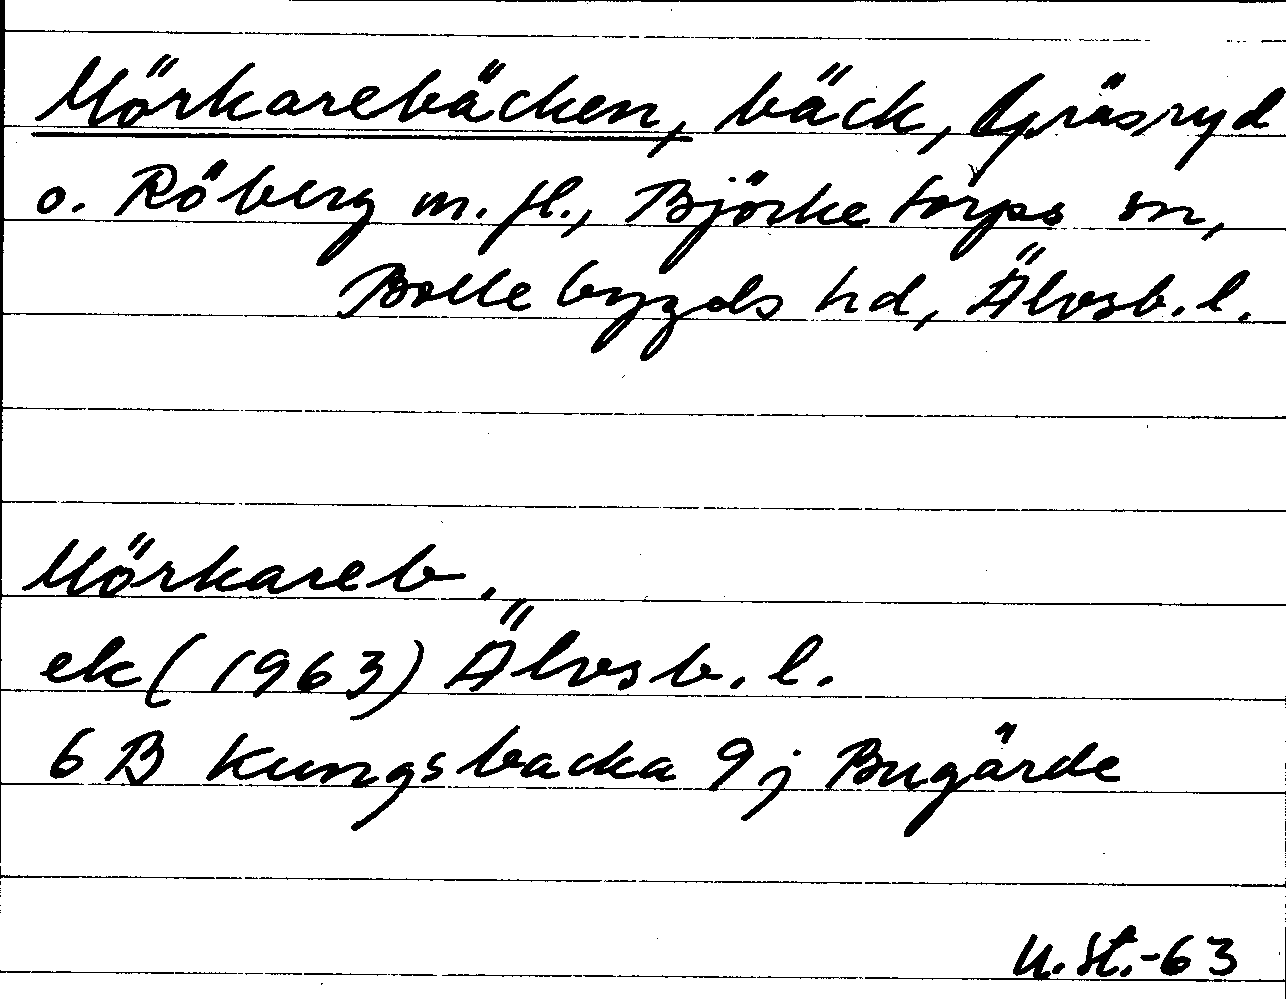 Mörkarebäcken, bäck, Gräsryd
o. Röberg m. fl., Björketorps sn,
Bollebygds hd, Älvsb. l.
Mörkareb.
ek (1963) Älvsb. l.
6 B Kungsbacka 9 j Bugärde
U. St. -63